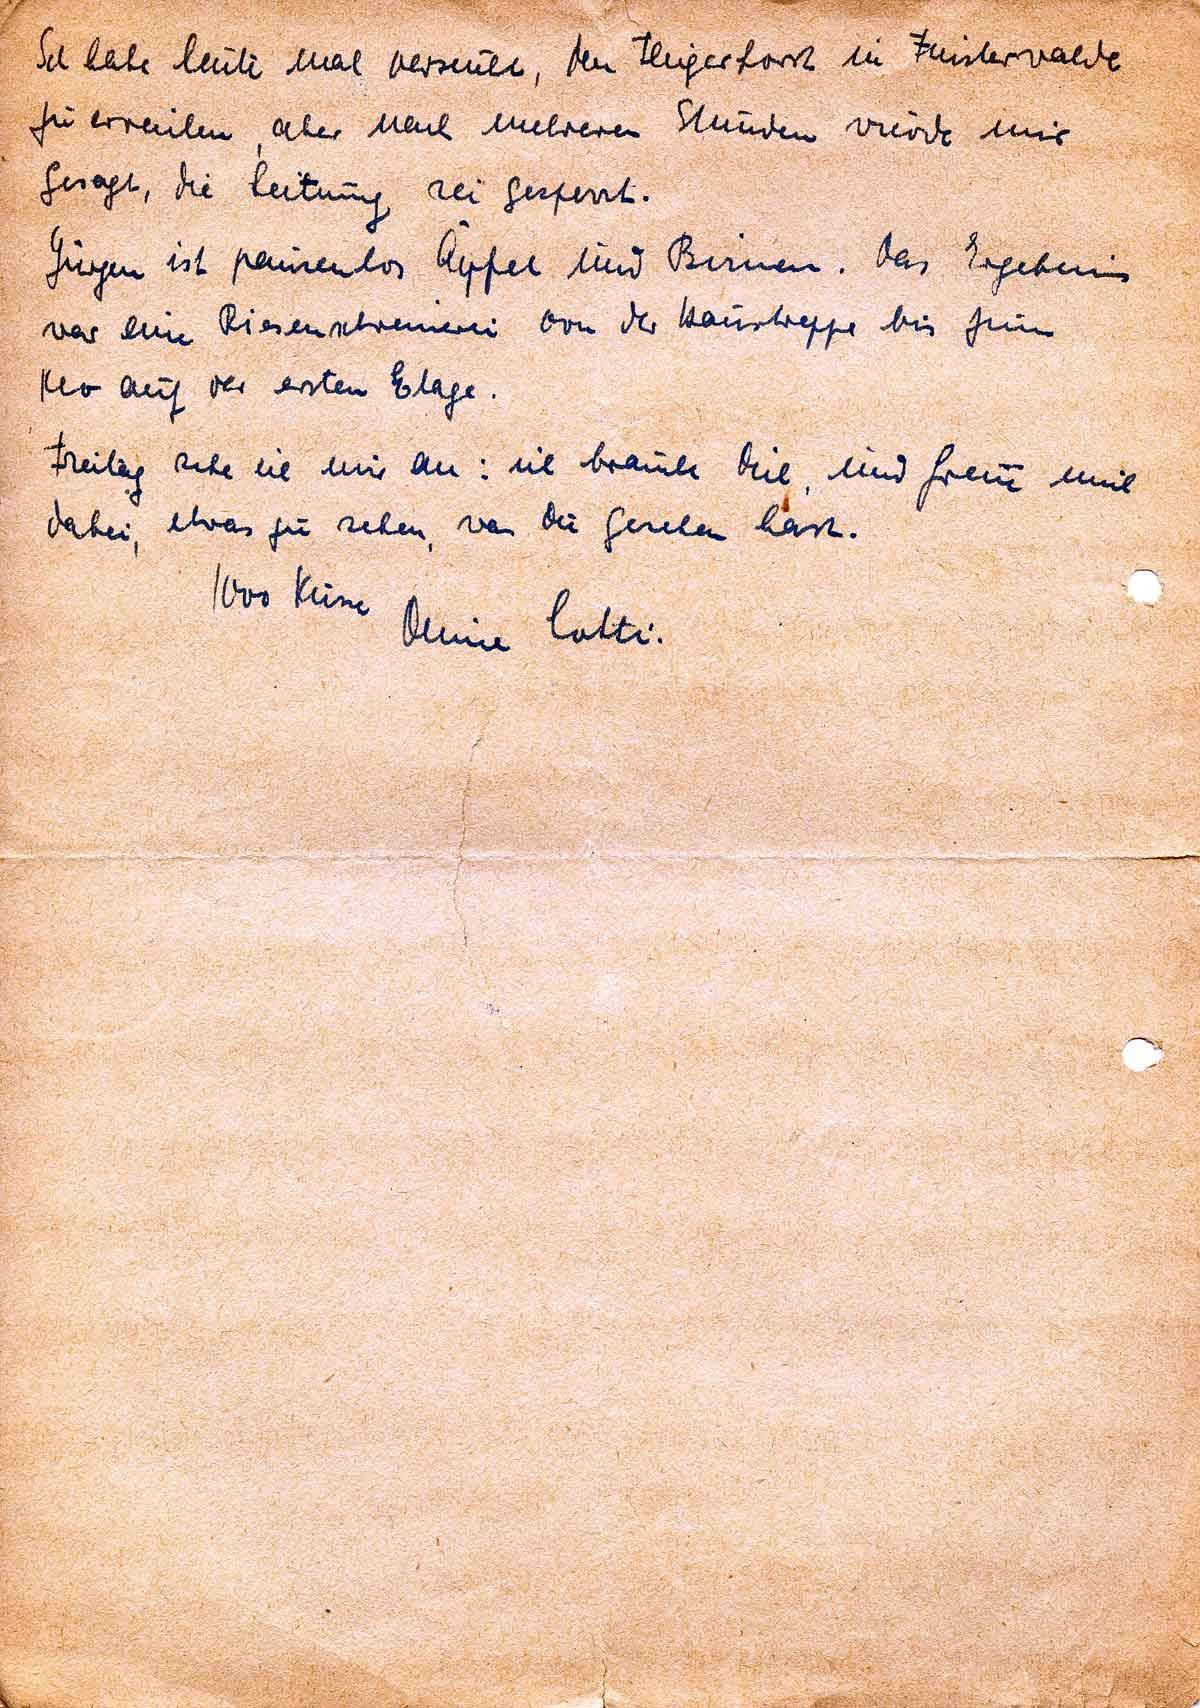 Ich habe heute mal versucht, den Fliegerhorst in Finsterwalde
zu erreichen, aber nach mehreren Stunden wurde mir
gesagt, die Leitung sei gesperrt.
Jürgen isst pausenlos Äpfel und Birnen. Das Ergebnis
war eine Riesenschweinerei von der Haustreppe bis zum
Klo auf der ersten Etage.
Freitag rufe ich mir an: ich brauche Dich, und freue mich
dabei, etwas zu sehen, was Du gesehen hast.
1000 Küsse Deine Lotti.